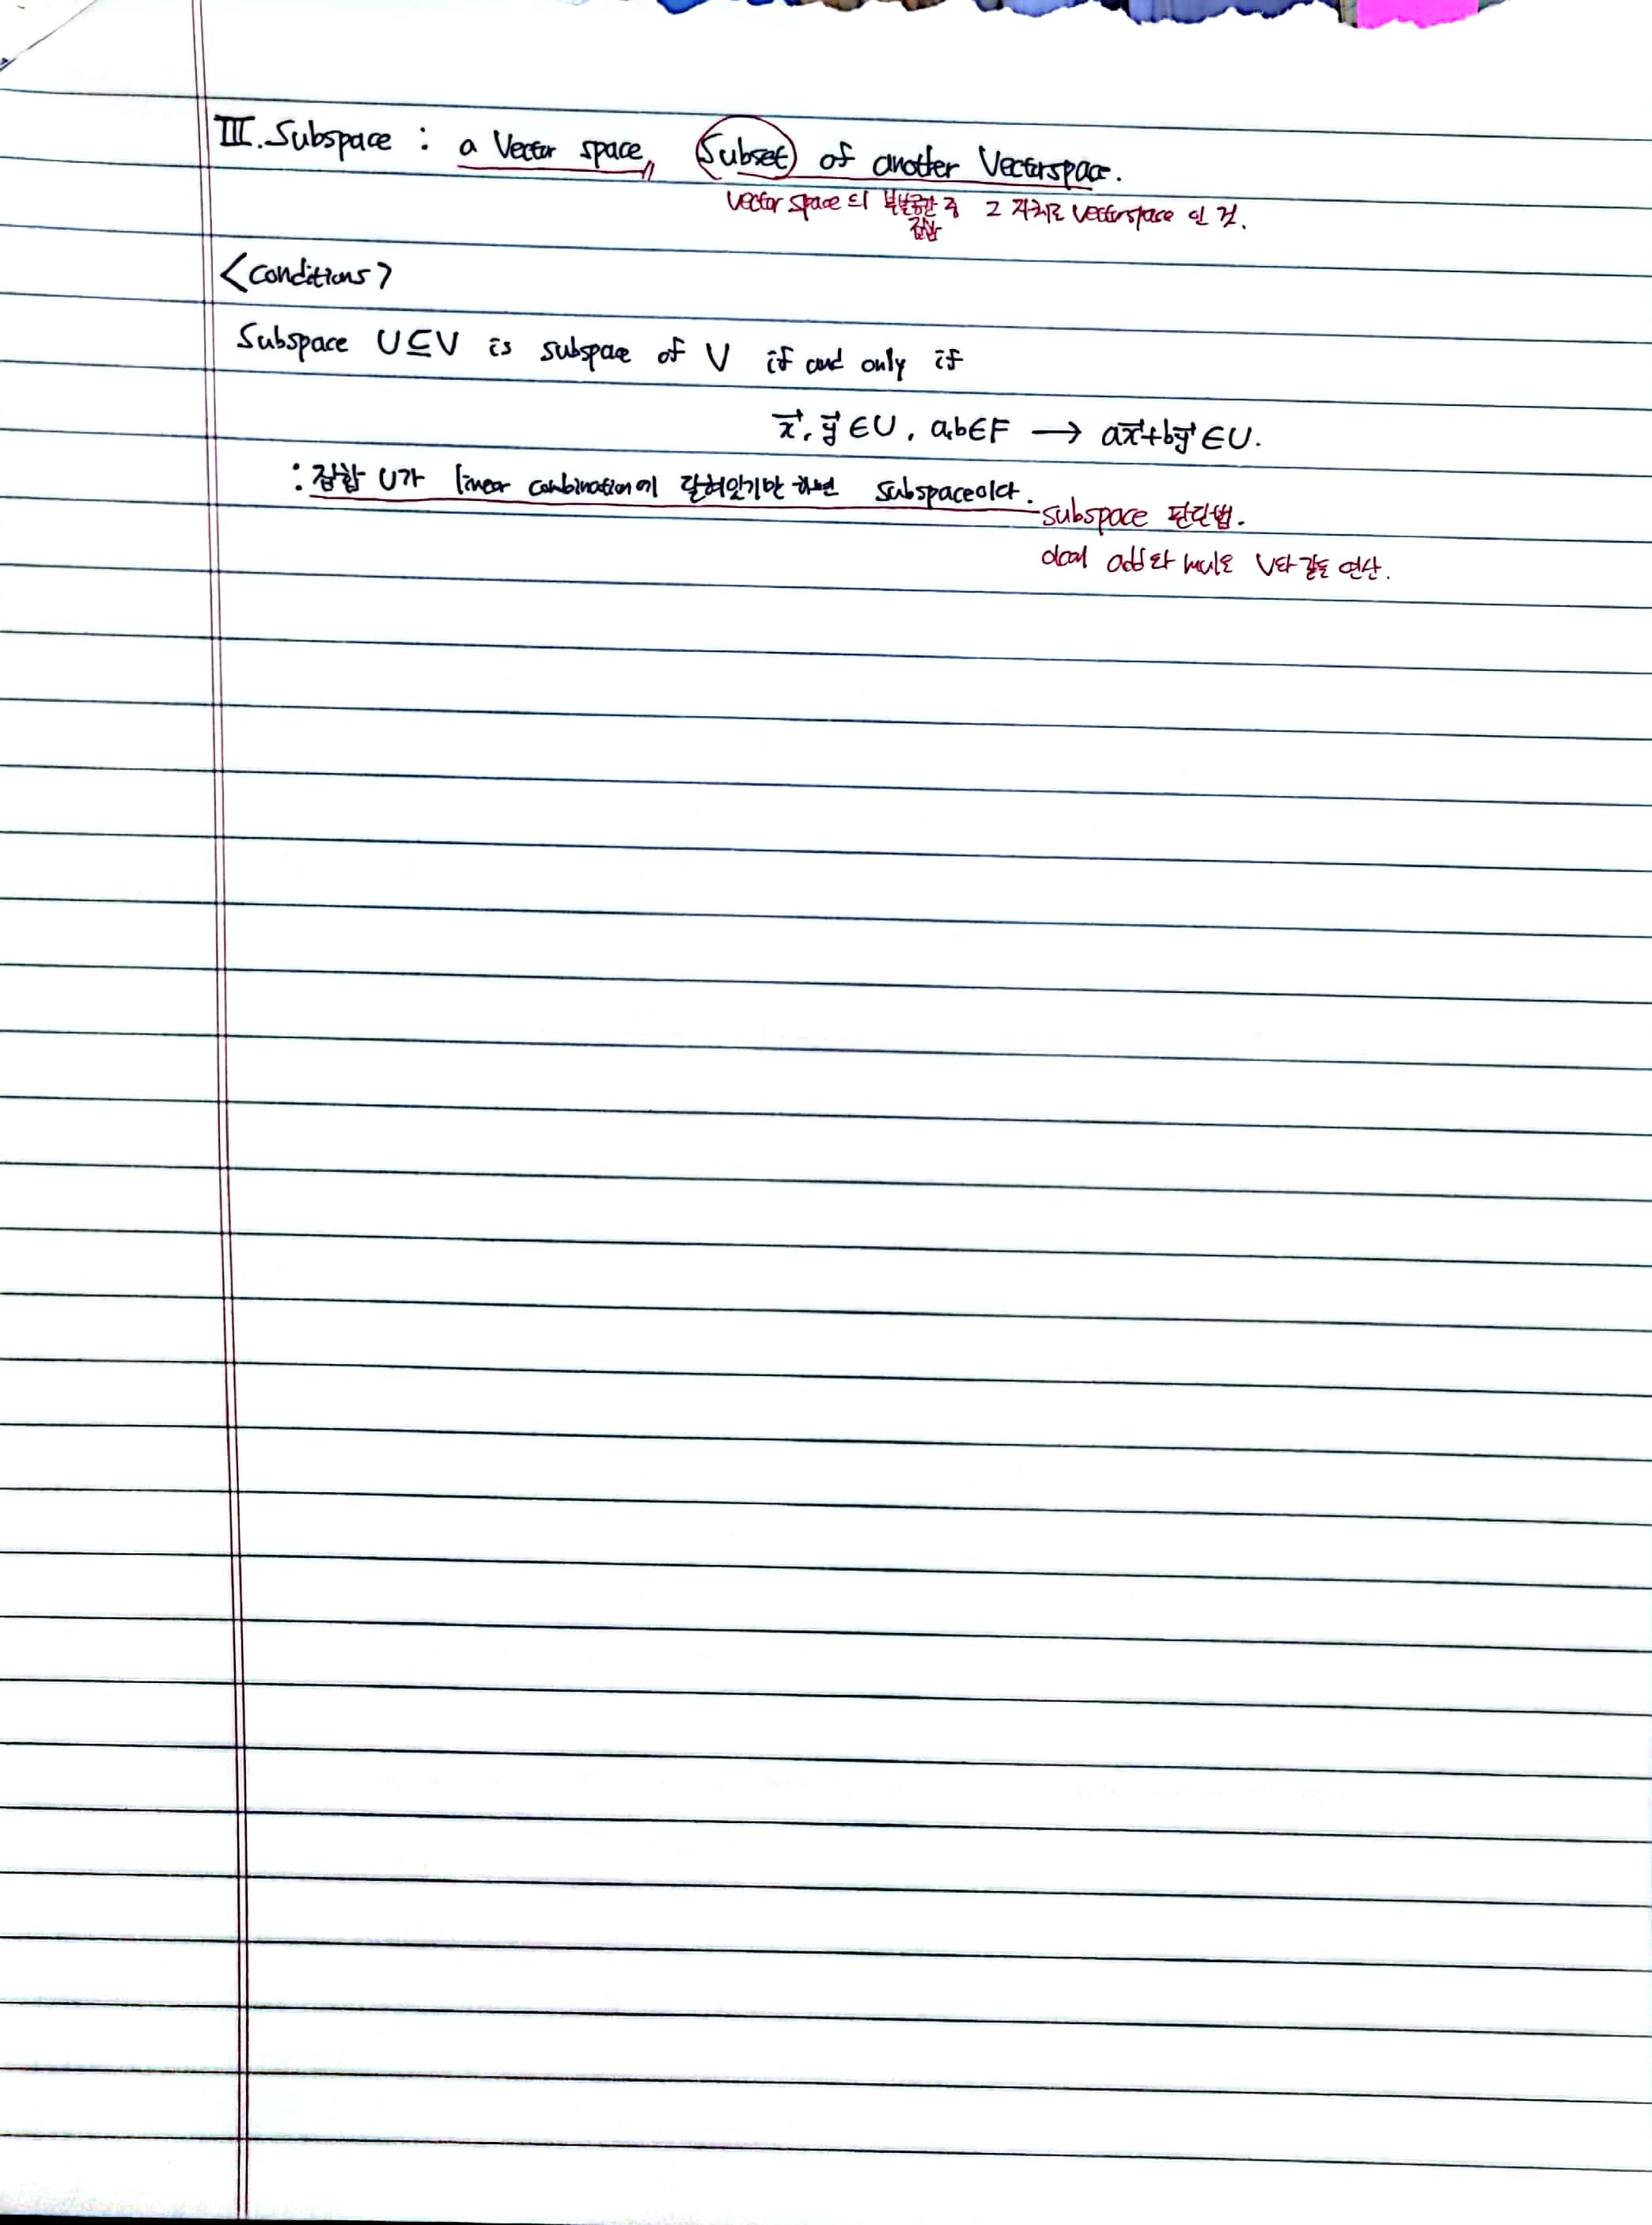 III. Subspace : a Vector space, Subset of another Vectorspace.
Vector space의 부분공간 중 그 자체로 vectorspace 인 것.
집합
<conditions>
Subspace U⊆V is subspae of V if and only if
x⃗, y⃗ ∈U, a,b∈F → ax⃗+by⃗ ∈U.
: 집합 U가 linear combination에 닫혀있기만 하면 subspace이다.
subspace 판단법.
이때 add와 mul은 V와 같은 연산.